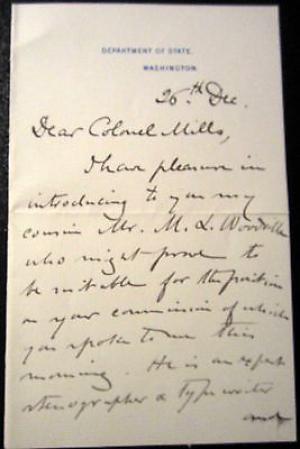 DEPARTMENT OF STATE.
WASHINGTON.
26th Dec.
Dear Colonel Mills,
I have pleasure in
introducing to you my
cousin Mr. M. L. Woodville
who might prove to
be suitable for the position
on your commission of which
you spoke to me this
morning. He is an expert
stenographer & typewriter
and